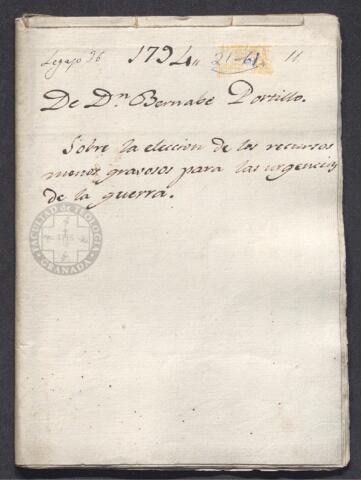 Legajo 36 1794,, 21-61 11
De Dn Bernabé Portillo.
Sobre la eleccion de los recursos
menos gravosos para las urgencias
de la guerra.
FACULTAD DE TEOLOGIA
GRANADA